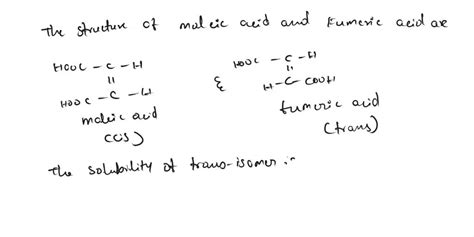 The structure of maleic acid and Fumeric acid are
HOOC - C - H
||
HOOC - C - H
maleic acid
(cis)
&
HOOC - C - H
||
H - C - COOH
fumeric acid
(trans)
The solubility of trans-isomer